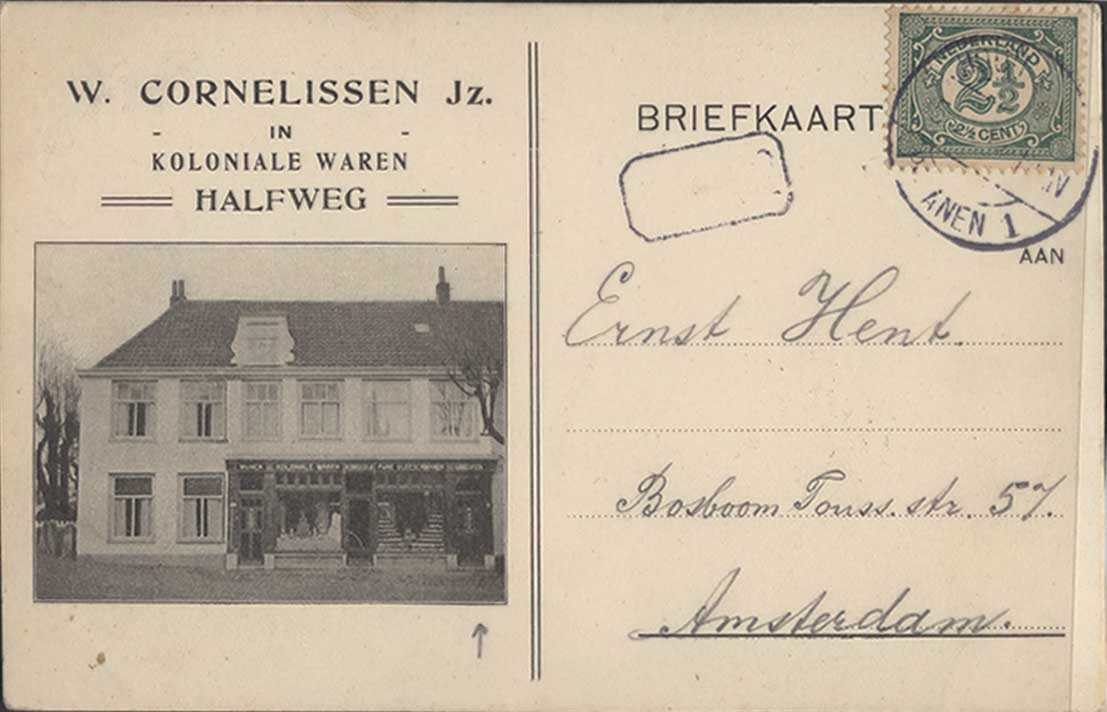 W. CORNELISSEN Jz.
- IN -
KOLONIALE WAREN
HALFWEG
KOLONIALE WAREN
BRIEFKAART
NEDERLAND
2 1/2
2½ CENT
ANEN 1
AAN
Ernst Hent.
Bosboom Touss. str. 57.
Amsterdam.